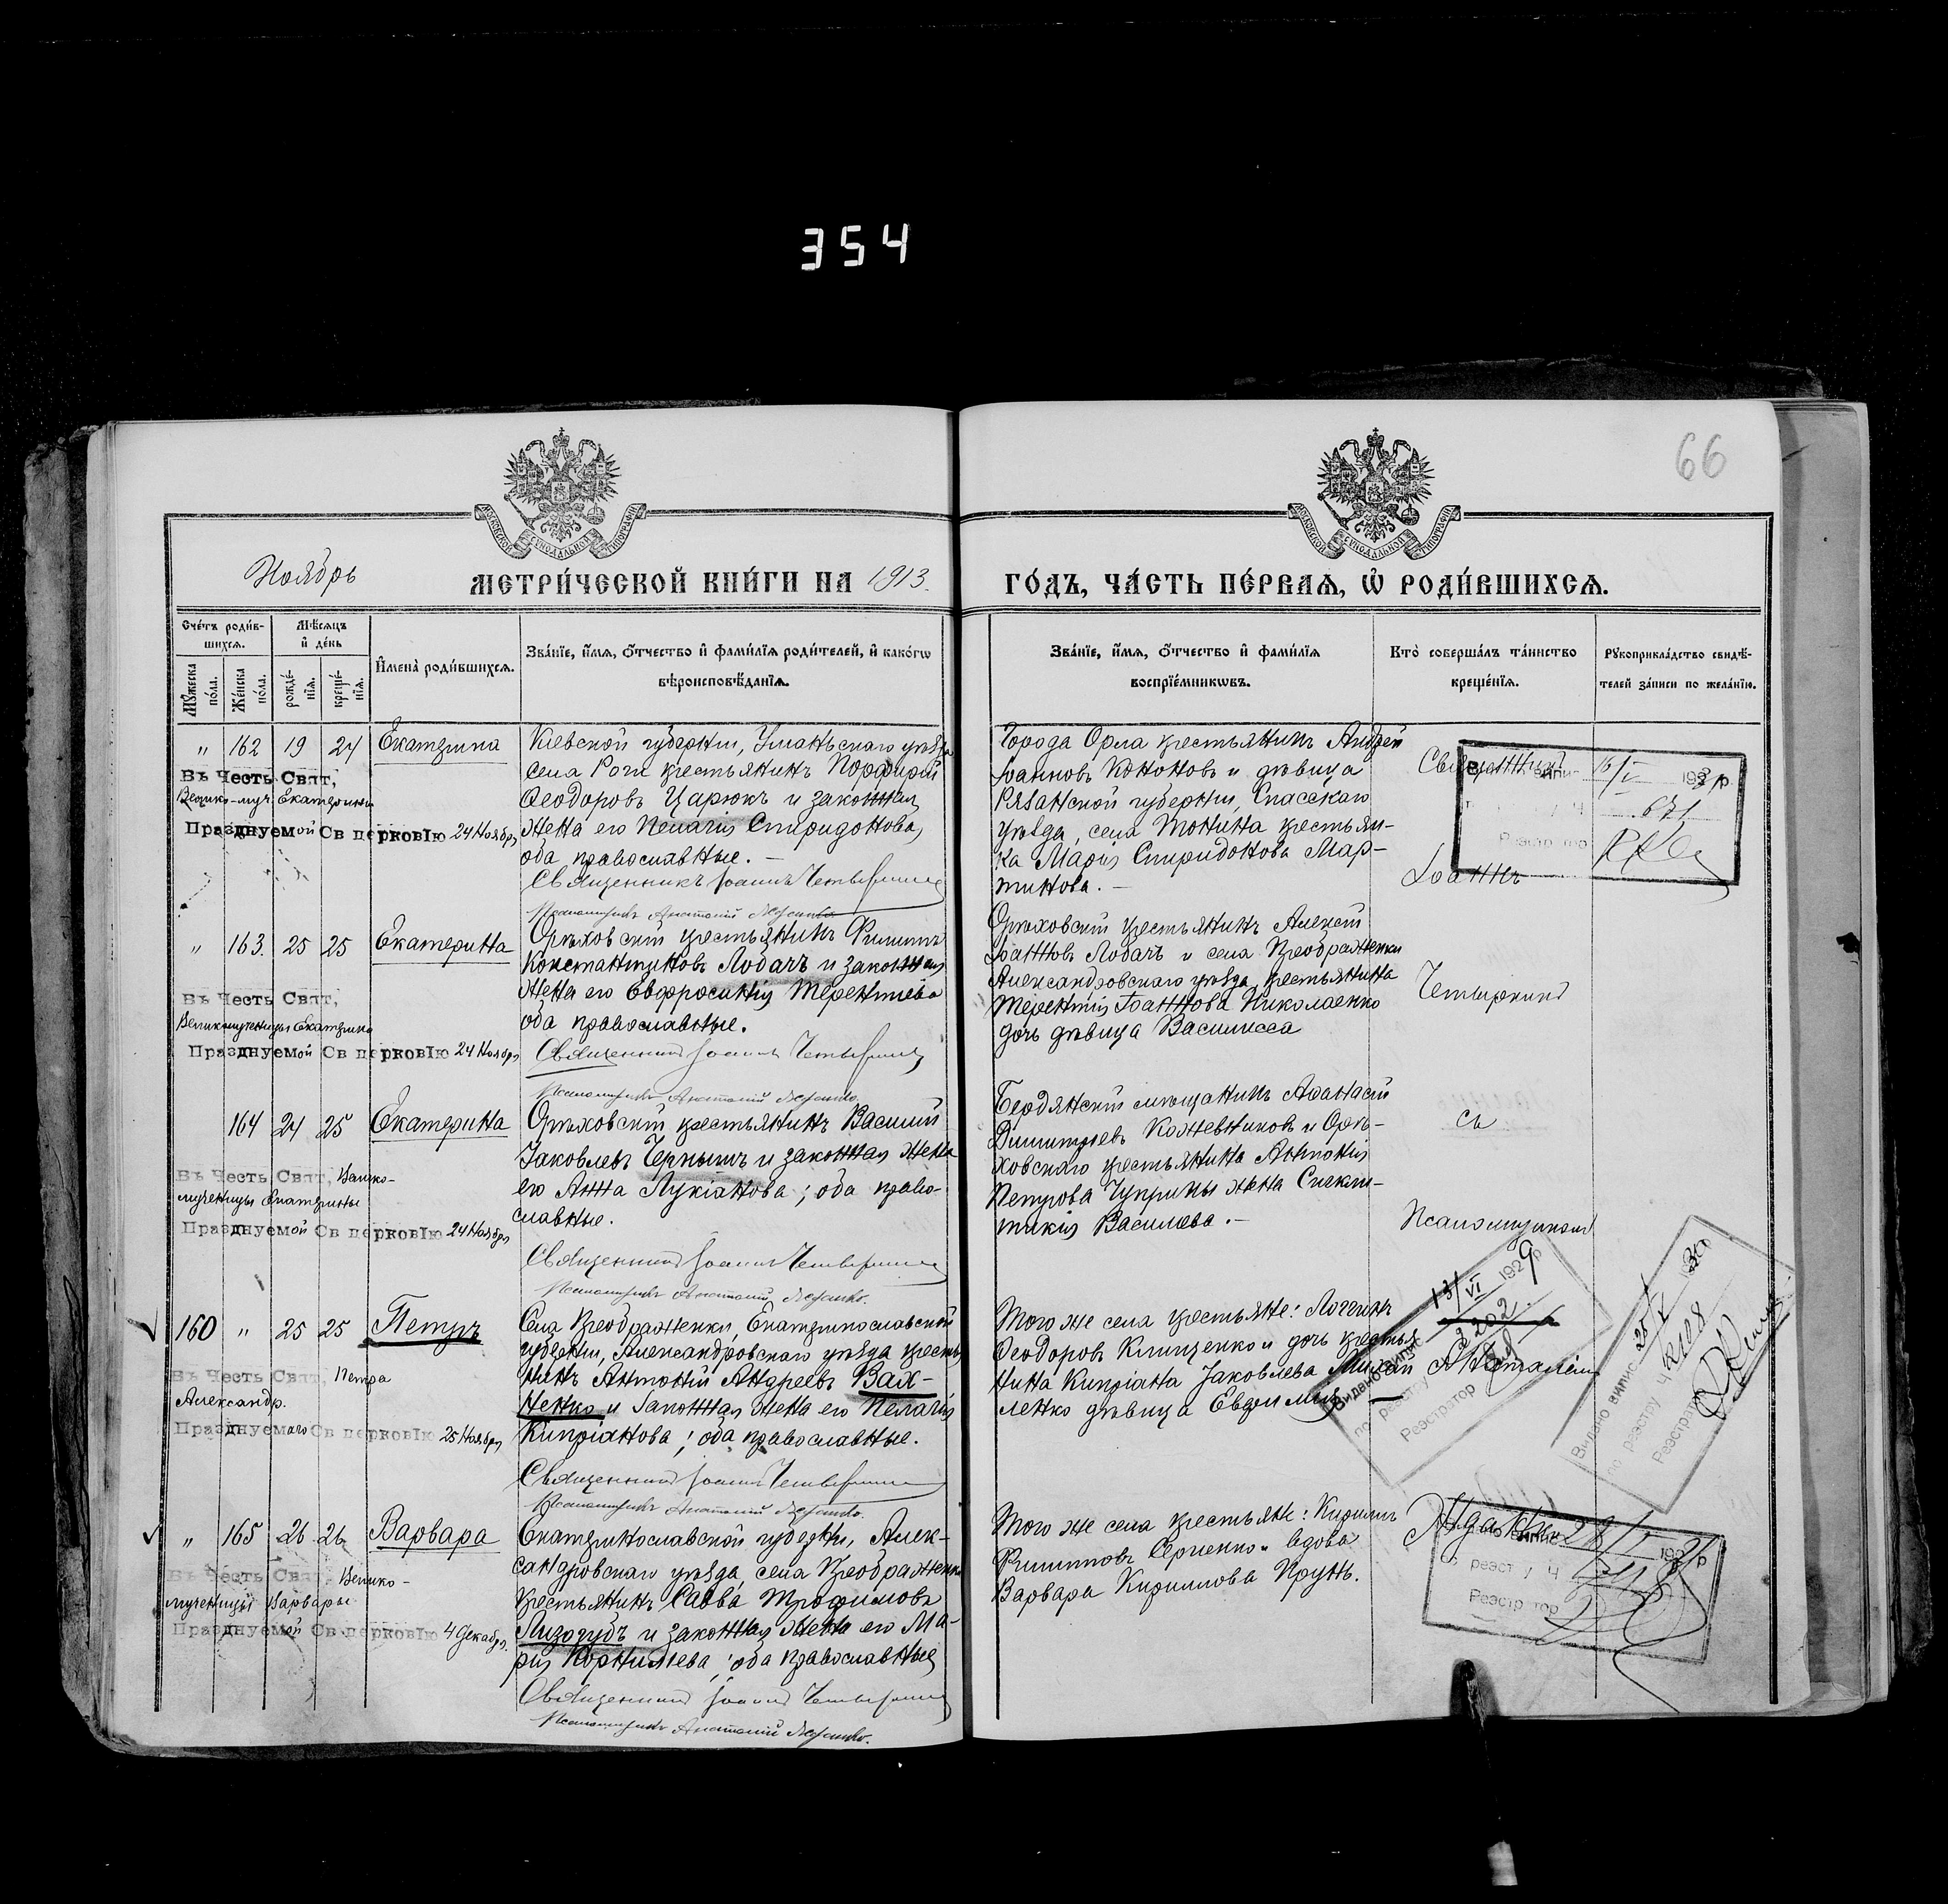 354
66
Ноябрь
МЕТРИ́ЧЕСКОЙ КНИ́ГИ НА 1913.
ГО́ДЪ, ЧА́СТЬ ПЕ́РВАЯ, Ѡ҆ РОДИ́ВШИХСЯ.
Сче́тъ роди́вшихся.
Му́жеска по́ла.
Же́нска по́ла.
Мѣ́сяцъ и҆ де́нь
рожде́нїя.
креще́нїя.
И҆мена̀ роди́вшихся.
Зва́нїе, и҆́мя, ѻ҆́тчество и҆ фами́лїя роди́телей, и҆ како́гѡ
вѣроисповѣ́данїя.
Зва́нїе, и҆́мя, ѻ҆́тчество и҆ фами́лїя
воспрїе́мникѡвъ.
Кто̀ соверша́лъ та́инство
креще́нїя.
Рукоприкла́дство свидѣ́-
телей за́писи по жела́нїю.
" 162 19 24 Екатерина
Въ Честь Свят,
Велико-муч. Екатерины
Празднуемой Св церковІю 24 Ноябр
Кіевской губерніи, Уманьскаго уѣзда
села Роги крестьянинъ Порфирій
Ѳеодоровъ Царюкъ и законная
жена его Пелагія Спиридонова,
оба православные. —
Священникъ Іоаннъ
Псаломщикъ Анатолій
Города Орла крестьянинъ Андрей
Іоанновъ Кононовъ и дѣвица
Рязанской губерніи, Спасскаго
уѣзда, села Тонина крестьян-
ка Марія Спиридонова Мар-
тинова. —
Священникъ
Іоаннъ
16/V 193 р
671
Реєстратор
" 163. 25 25 Екатерина
Въ Честь Свят,
Великомученицы Екатерины
Празднуемой Св церковІю 24 Ноябр
Орѣховскій крестьянинъ Филиппъ
Константиновъ Лобачъ и законная
жена его Евфросинія Терентіева
оба православные.
Священникъ Іоаннъ
Псаломщикъ Анатолій
Орѣховскій крестьянинъ Алексій
Іоанновъ Лобачъ и села Преображенки
Александровскаго уѣзда, крестьянина
Терентія Іоаннова Николаенко
дочь дѣвица Василисса
164 24 25 Екатерина
Въ Честь Свят, Велико-
мученицы Екатерины
Празднуемой Св церковІю 24 Ноябр
Орѣховскій крестьянинъ Василій
Іаковлевъ Чернышъ и законная жена
его Анна Лукіанова; оба право-
славные.
Священникъ Іоаннъ
Псаломщикъ Анатолій
Бердянскій мѣщанинъ Аѳанасій
Димитріевъ Кожевниковъ и Орѣ-
ховскаго крестьянина Антонія
Петрова Чуприны жена Синкли-
тикія Василіева. —
съ
Псаломщикомъ
160 " 25 25 Петръ
Въ Честь Свят, Петра
Александр.
Празднуемаго Св церковІю 25 Ноябр
Села Преображенки, Екатеринославской
губерніи, Александровскаго уѣзда кресть
нинъ Антоній Андреевъ Вах-
ненко и законная жена его Пелагія
Кипріанова; оба православные.
Священникъ Іоаннъ
Псаломщикъ Анатолій
Того же села крестьяне: Логгинъ
Ѳеодоровъ Клищенко и дочь крестья
нина Кипріана Іаковлева Михай
ленко дѣвица Евдокимія
Анатоліемъ
Видано виписс 13/VI 1929 р
по реєстру 3202
Реєстратор
Видано виписс 25/V 1930 р
по реєстру Ч
Реєстратор
" 165 26 26 Варвара
Въ Честь Свят, Велико-
мученицы Варвары
Празднуемой Св церковІю 4 Декабр.
Екатеринославской губерніи, Алек-
сандровскаго уѣзда, села Преображенки
крестьянинъ Савва Трофимовъ
Лизогубъ и законная жена его Ма-
рія Корниліева; оба православные
Священникъ Іоаннъ
Псаломщикъ Анатолій
Того же села крестьяне: Кириллъ
Филипповъ Сергіенко и вдова
Варвара Кириллова Прунь.
по реєст у Ч
Реєстр тор